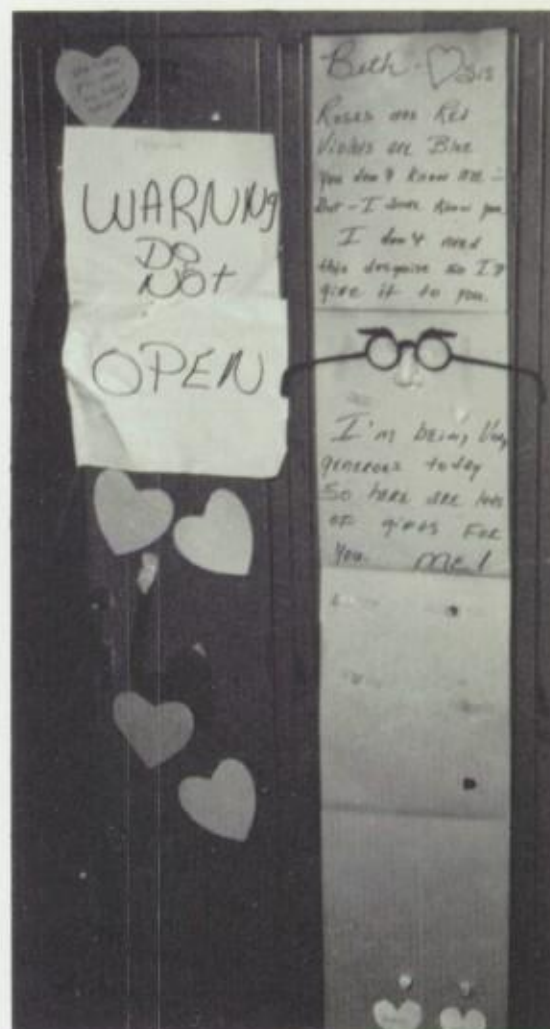 WARNNG
DO
NOT
OPEN
Beth - Sis
Roses are Red
Violets are Blue
You don't know me -
But - I sure know you
I don't need
this disguise so I'll
give it to you.
I'm being Very
generous today
So here are lots
of gifts For
You. Me!